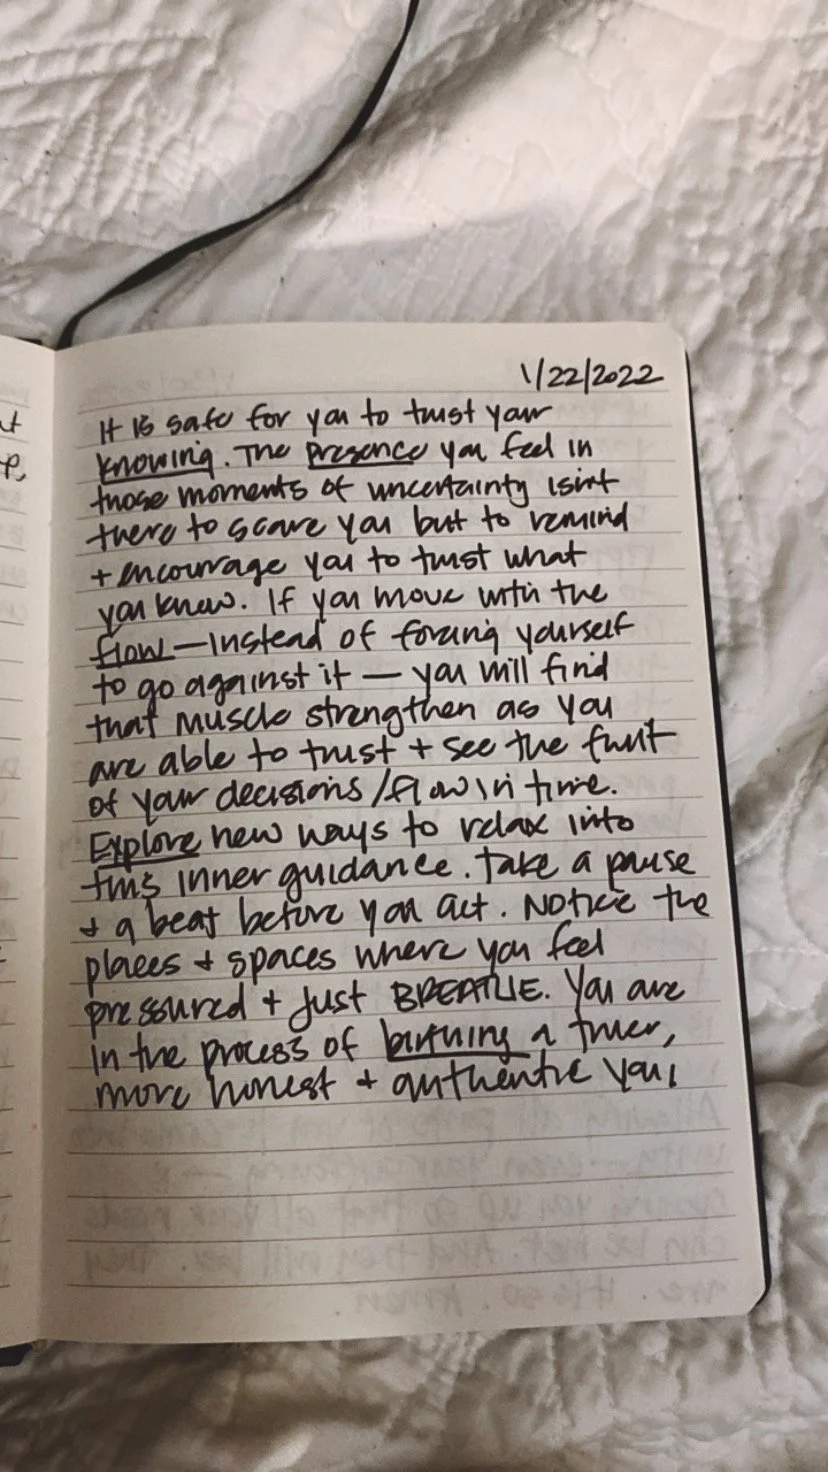 1/22/2022
It is safe for you to trust your
knowing. The presence you feel in
those moments of uncertainty isn't
there to scare you but to remind
+ encourage you to trust what
you know. If you move with the
flow—instead of forcing yourself
to go against it — you will find
that muscle strengthen as you
are able to trust + see the fruit
of your decisions/flow in time.
Explore new ways to relax into
this inner guidance. Take a pause
+ a beat before you act. Notice the
places + spaces where you feel
pressured + just BREATHE. You are
in the process of birthing a truer,
more honest + authentic you!